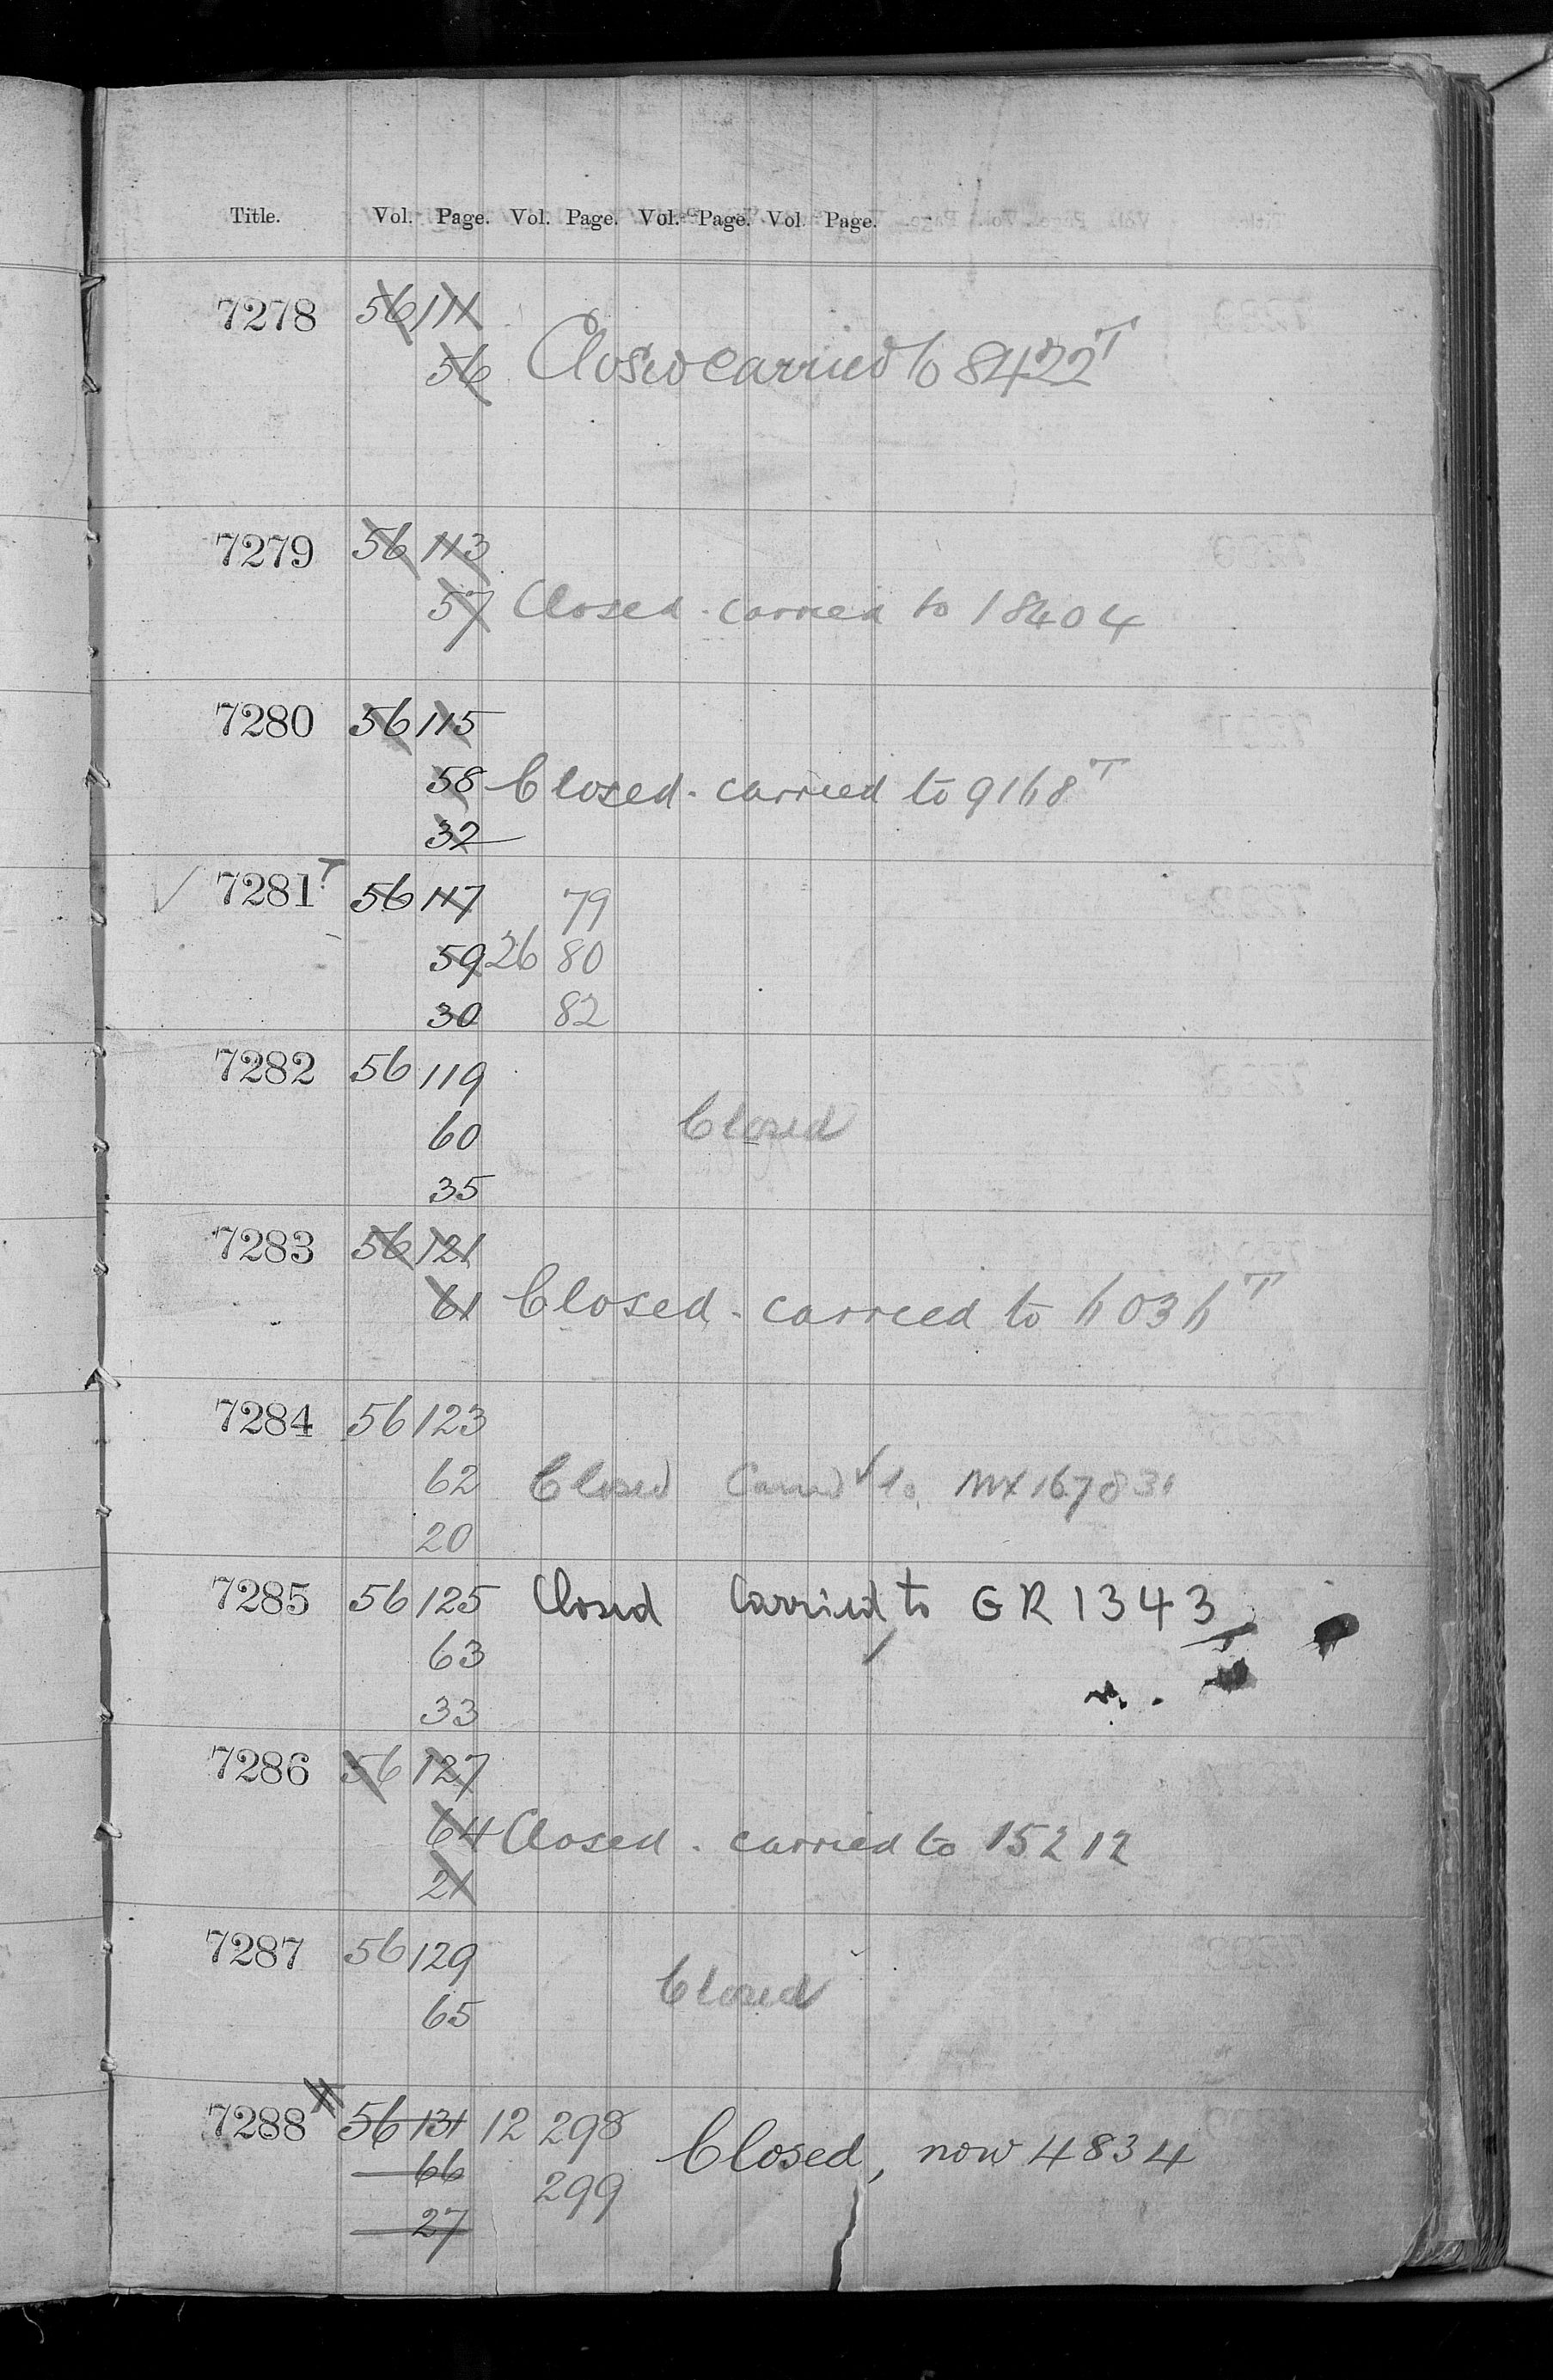 Title. Vol. Page. Vol. Page. Vol. Page. Vol Page.
7278 56 111
56 Closed carried to 8422 T
7279 56 113
57 Closed. carried to 18404
7280 56 115
58 Closed. carried to 9168 T
32
7281 T 56 117 79
59 26 80
30 82
7282 56 119
60 Closed
35
7283 56 121
61 Closed. carried to 6036 T
7284 56 123
62 Closed Carried to
20
7285 56 125 Closed Carried to GR 1343
63
33
7286 56 127
64 Closed. carried to 15212
21
7287 56 129
65 Closed
7288 56 131 12 298
66 299 Closed, now 4834
27